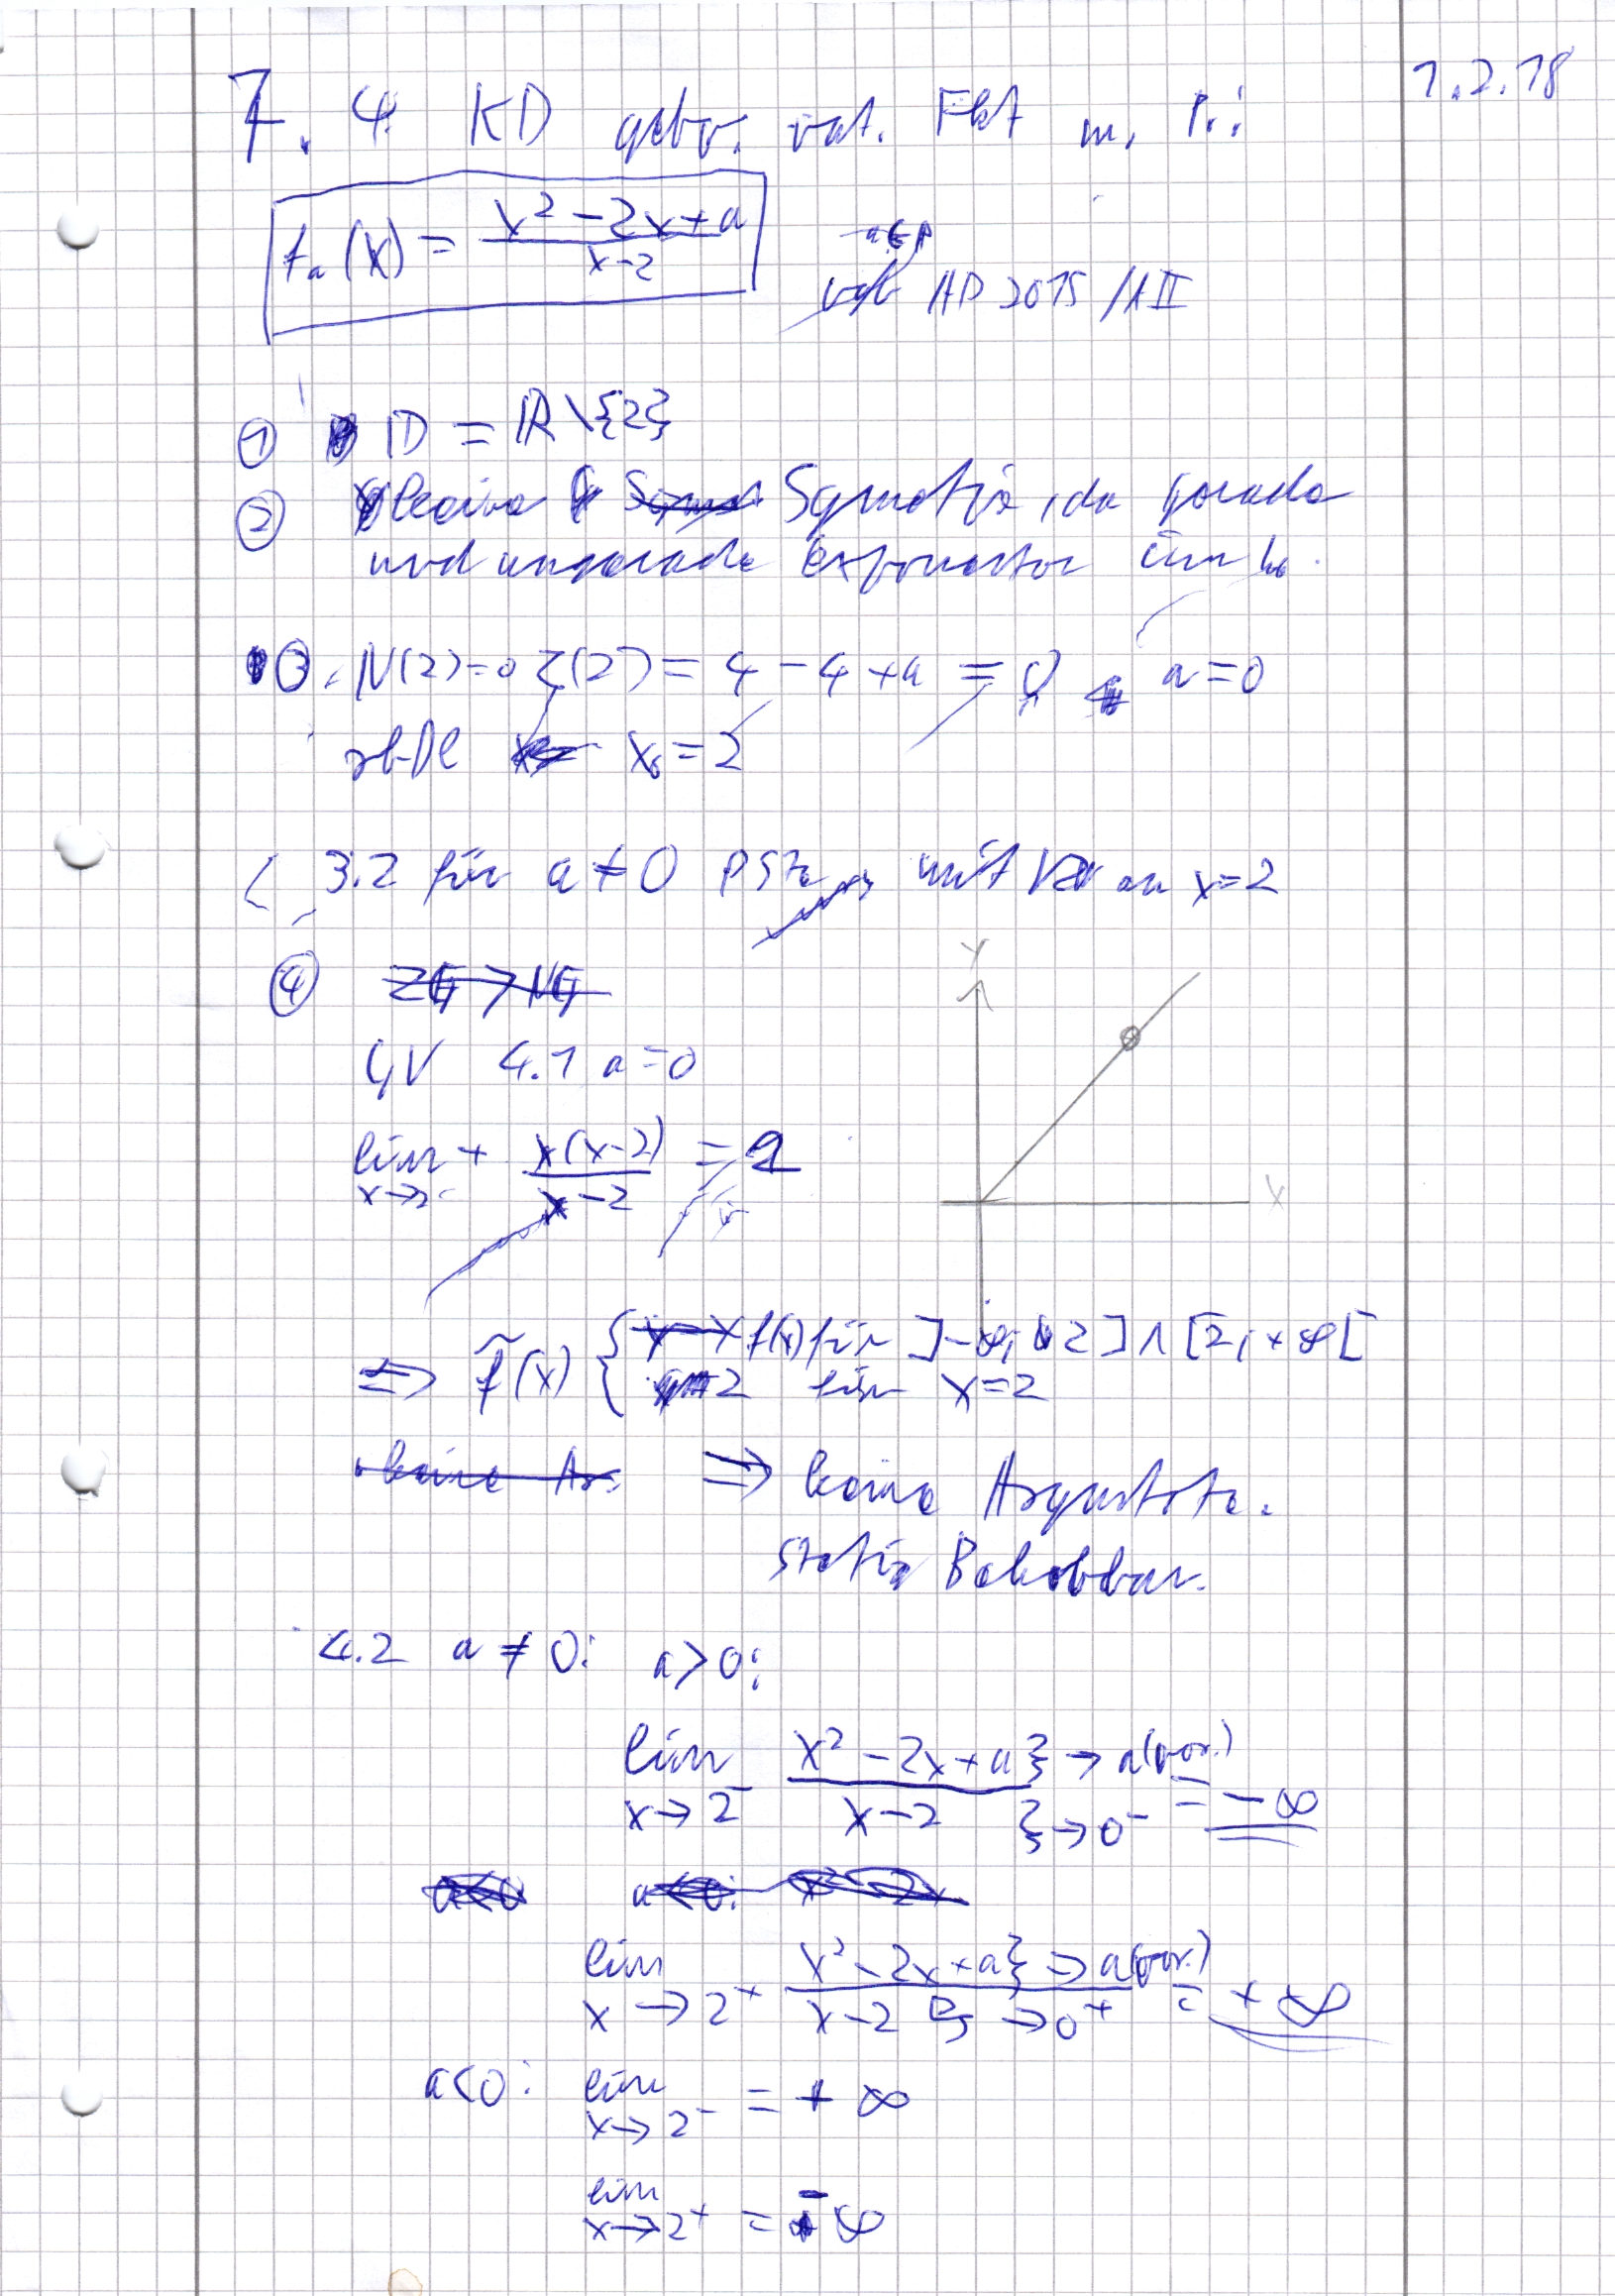 1.2.18
7.4. KD gebr. rat. Fkt m. P.:
f_a(x) = (x² - 2x + a)/(x - 2)
a∈R
vgl. AP 2015 / A II
① D = ℝ \ {2}
② keine Symetrie, da gerade
und ungerade Exponenten
③ N(2)=0 Z(2) = 4 - 4 + a = 0 a = 0
x₀ = 2
3.2 für a ≠ 0 PSt mit VZW an x=2
④ ZG > NG
GV 4.1 a=0
lim x→2 + x(x-2)/(x-2) = 2
y
x
⇒ f̃(x) { f(x) für ]-∞; 2] ∧ [2; +∞[
2 für x=2
keine As. ⇒ keine Asymtote.
stetig Behebbar.
4.2 a ≠ 0: a > 0:
lim x→2⁻ (x² - 2x + a)/(x - 2) } → a (pos.) } → 0⁻ = -∞
a<0 a<0: x² - 2x
lim x→2⁺ (x² - 2x + a)/(x - 2) } → a (pos.) } → 0⁺ = +∞
a<0: lim x→2⁻ = + ∞
lim x→2⁺ = - ∞